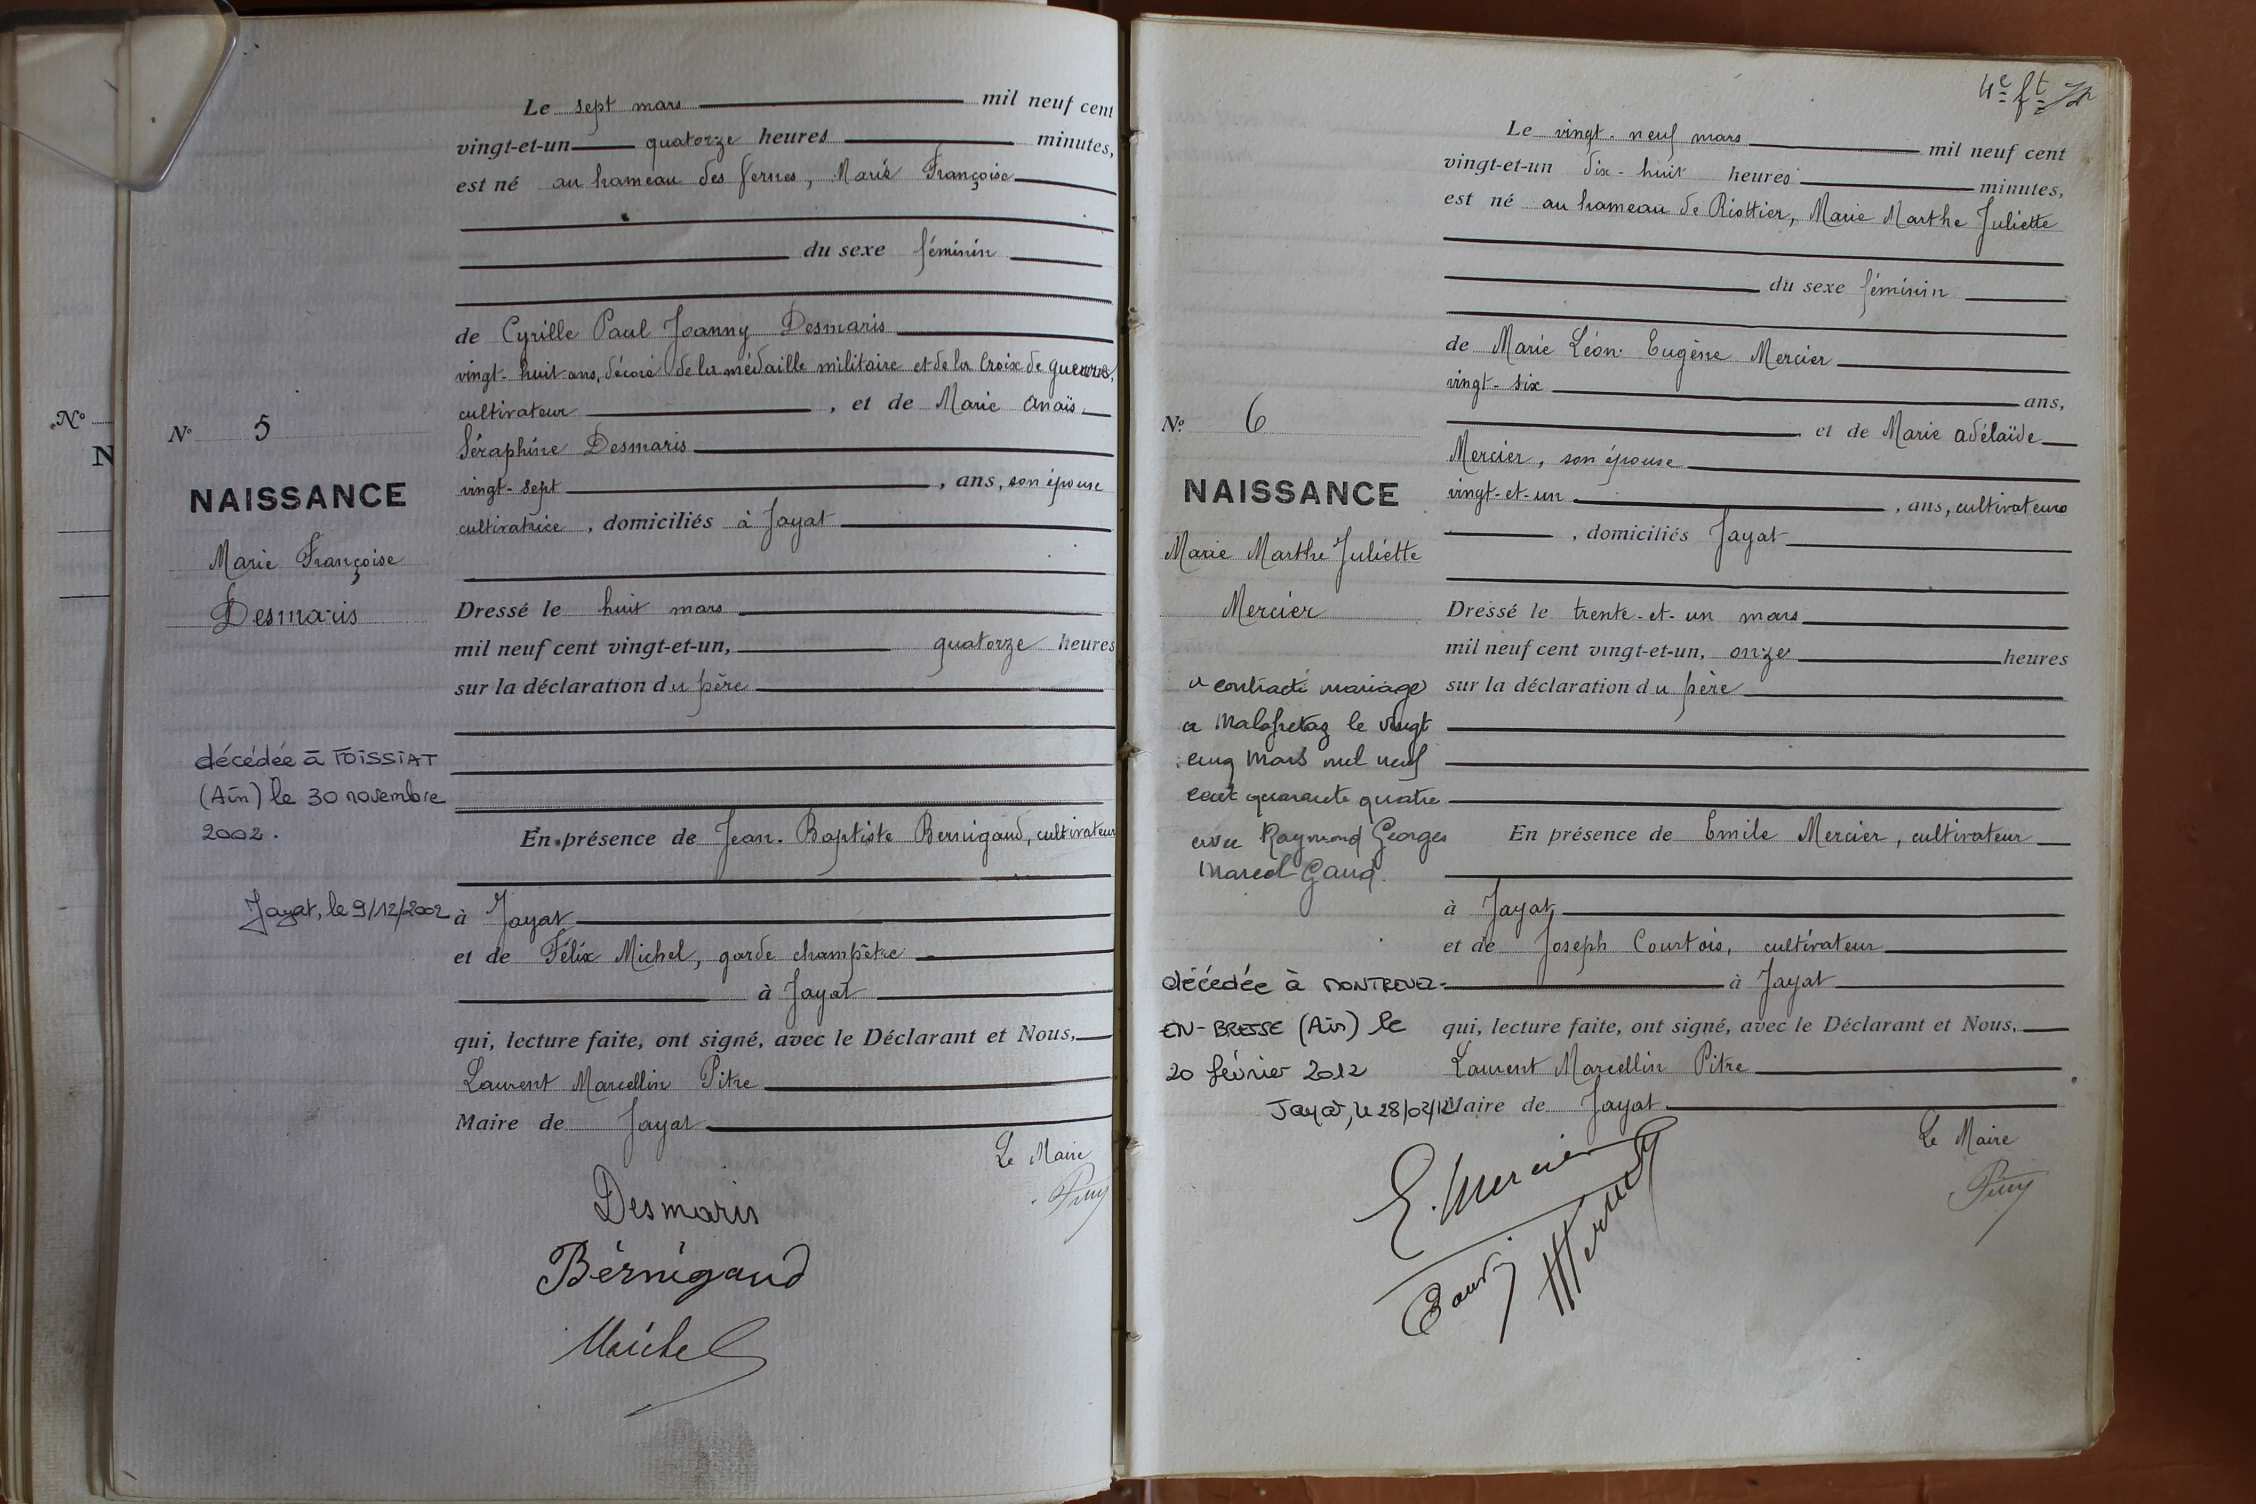 N°
N
Le sept mars mil neuf cent
vingt-et-un quatorze heures minutes,
est né au hameau des fernes, Marie Françoise
du sexe féminin
de Cyrille Paul Joanny Desmaris
vingt-huit ans, décoré de la médaille militaire et de la Croix de guerre,
cultivateur , et de Marie Anaïs
Séraphine Desmaris
vingt-sept , ans, son épouse
cultivatrice , domiciliés à Jayat
Dressé le huit mars
mil neuf cent vingt-et-un, quatorze heures
sur la déclaration du père
En présence de Jean-Baptiste Bernigaud, cultivateur
à Jayat
et de Félix Michel, garde champêtre
à Jayat
qui, lecture faite, ont signé, avec le Déclarant et Nous,
Laurent Marcellin Pitre
Maire de Jayat
Le Maire
Desmaris
Bérnigaud
Michel
N° 5
NAISSANCE
Marie Françoise
Desmaris
décédée à FOISSIAT
(Ain) le 30 novembre
2002.
Jayat, le 9/12/2002
4e ft
Le vingt-neuf mars mil neuf cent
vingt-et-un dix-huit heures minutes,
est né au hameau de Riottier, Marie Marthe Juliette
du sexe féminin
de Marie Léon Eugène Mercier
vingt-six ans,
et de Marie Adélaïde
Mercier, son épouse
vingt-et-un , ans, cultivateurs
, domiciliés Jayat
Dressé le trente-et-un mars
mil neuf cent vingt-et-un, onze heures
sur la déclaration du père
En présence de Emile Mercier, cultivateur
à Jayat
et de Joseph Courtois, cultivateur
à Jayat
qui, lecture faite, ont signé, avec le Déclarant et Nous,
Laurent Marcellin Pitre
Maire de Jayat
Le Maire
E. Mercier
N° 6
NAISSANCE
Marie Marthe Juliette
Mercier
a contracté mariage
a Malafretaz le vingt
cinq Mars mil neuf
cent quarante quatre
avec Raymond Georges
Marcel Gaud.
décédée à MONTREVEL-
EN-BRESSE (Ain) le
20 février 2012
Jayat, le 28/02/12